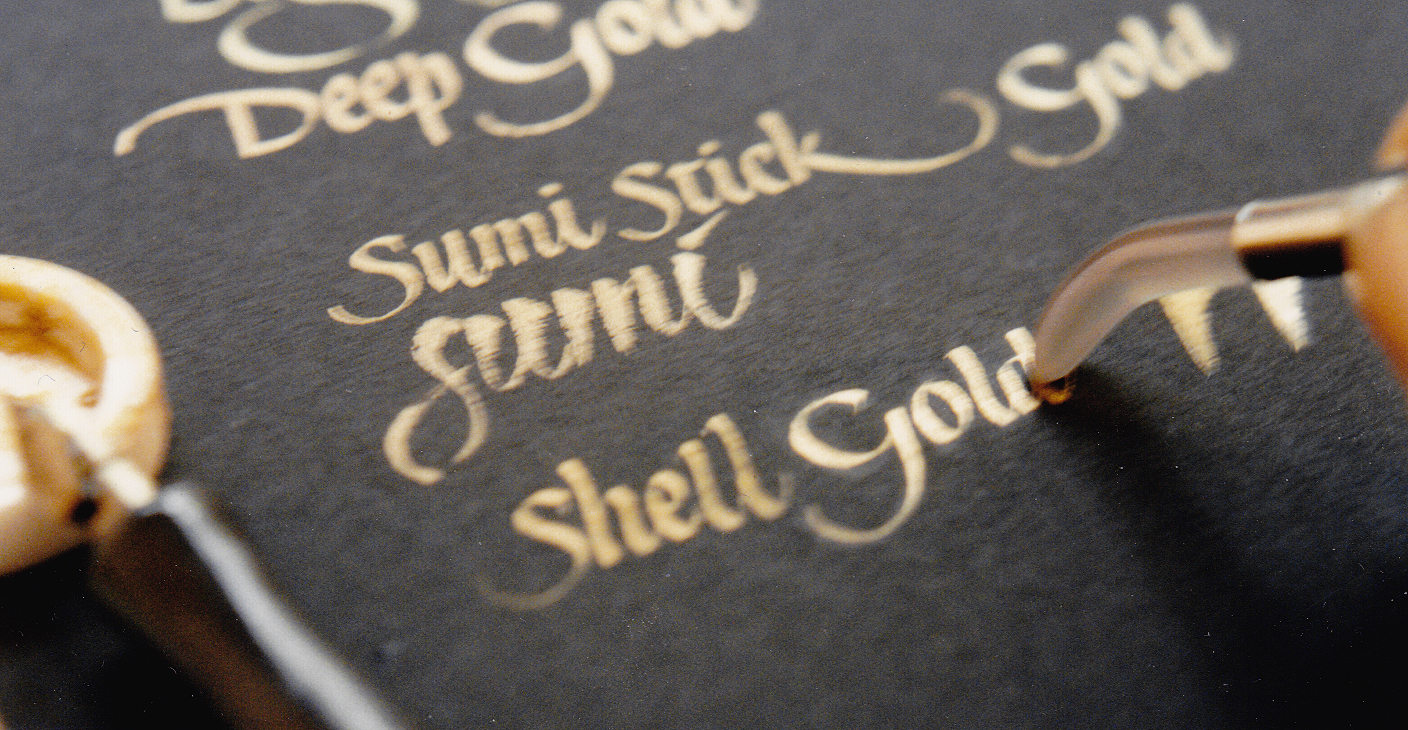 Deep Gold
Sumi Stick Gold
sumi
Shell Gold